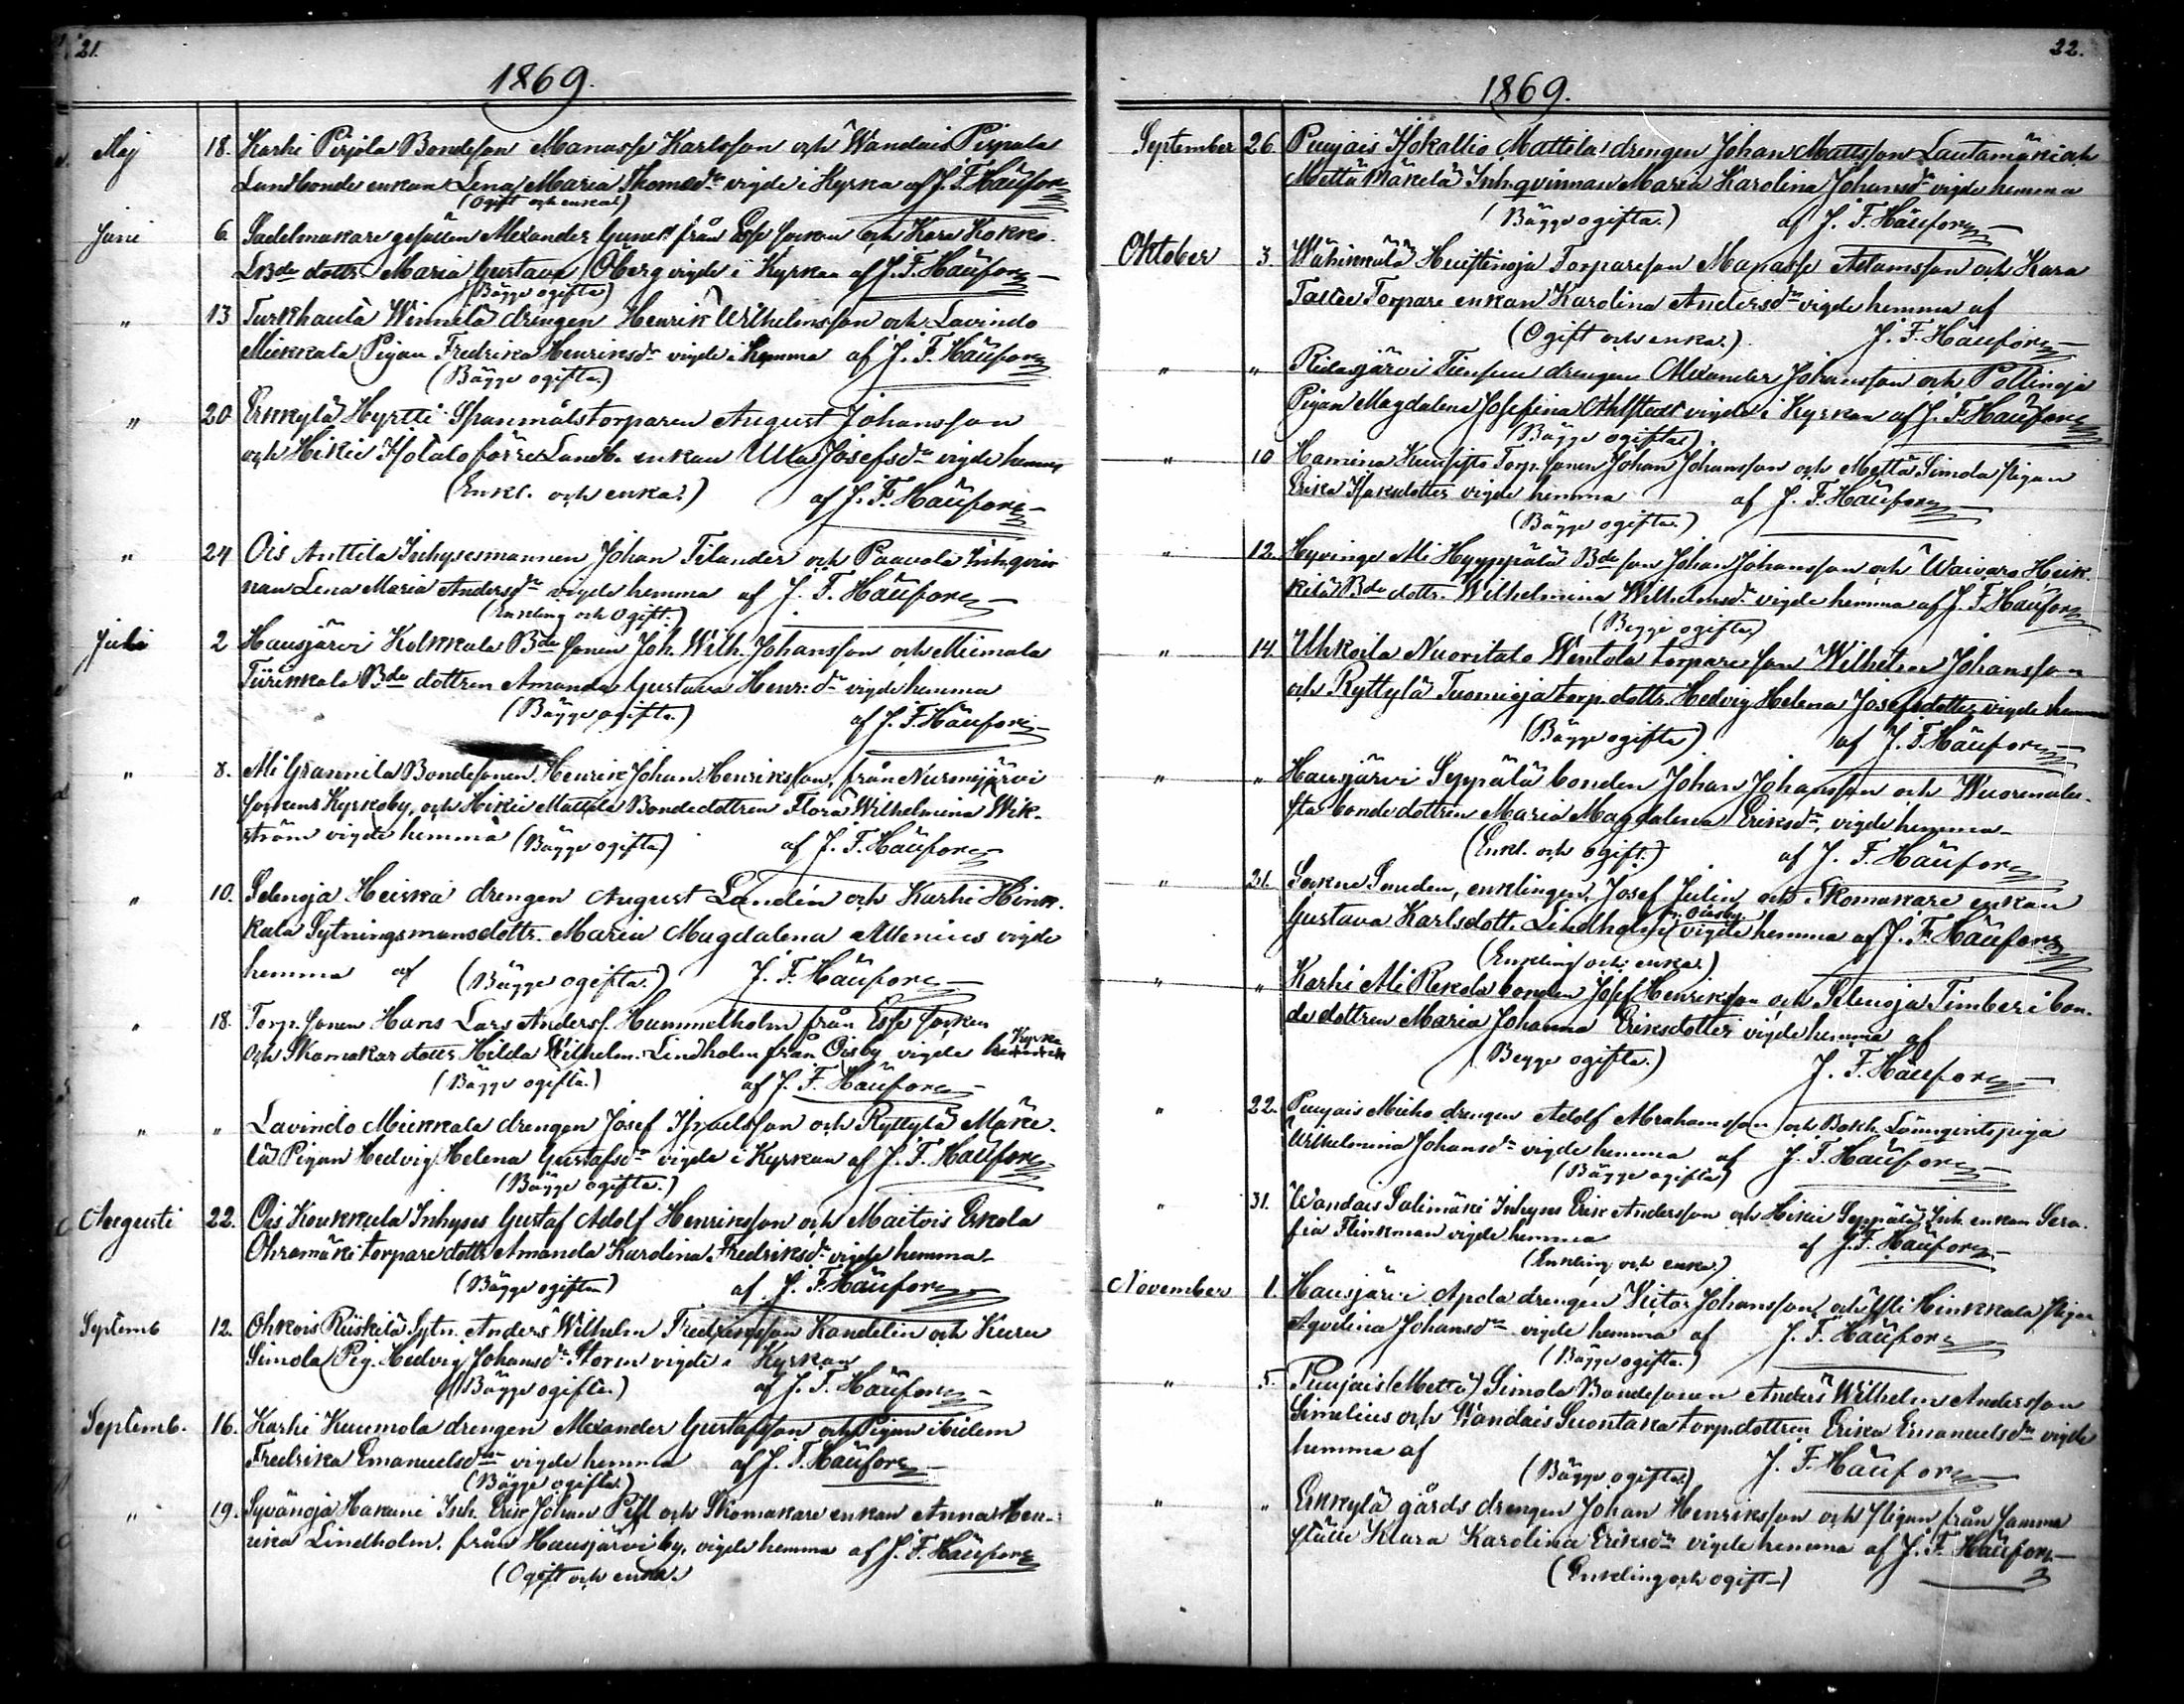 21.
1869.
Maj 18. Karhi Pirjola Bondeson Manasse Karlsson och Wandais Pirpala
Landbonde enkan Lena Maria Thomasdr vigde i Kyrka af J. F. Häufors
(Ogift och enka)
Juni 6. Sadelmakare gesällen Alexander from Esse socken och Kara Kokko
LBde dottr. Maria Gustava Öberg vigde i Kyrkan af J. F. Häufors
(Bägge ogifta)
" 13 Turkhauta Winnilä drengen Henrik Wilhelmsson och Lavindo
Mickkala Pigan Fredrika Henriksdr vigde i hemma af J. F. Häufors
(Bägge ogifta)
" 20 Erkkylä Hyrtti Spanmålstorparen August Johansson
och Hikiä Isotalo förre Landb. enkan Ulla Josefsdr vigde hemma
(Enkl. och enka.) af J. F. Häufors
" 24 Ois Anttila Inhysesmannen Johan Tilander och Paavola Inhqvin
nan Lena Maria Andersdr vigde hemma af J. F. Häufors
(Enkling och Ogift.)
Juli 2 Hausjärvi Kolkkala Bde sonen Joh. Wilh. Johansson och Miemala
Bde dottren Amanda Gustava Henr:dr vigde hemma
(Bägge ogifta.) af J. F. Häufors
" 8. Ali Grannila Bondesonen Henrik Johan Henriksson, från Nurmijärvi
sockens Kyrkoby, och Hikiä Mattila Bondedottren Flora Wilhelmina Wik-
ström vigde hemma (Bägge ogifta) af J. F. Häufors
" 10. Selenoja Heikka drengen August Landén och Karhi Hink-
kala Sytningsmansdottr. Maria Magdalena Allenius vigde
hemma af (Bägge ogifta.) J. F. Häufors
" 18. Torp. sonen Hans Lars Anders. Hummelholm från Esse socken
och Skomakar dottr. Hilda Wilhelm. Lindholm från Oisby vigde Kyrka
(Bägge ogifta.) af J. F. Häufors
" " Lavindo Mickkala drengen Josef Israelsson och Ryttylä Mäke-
lä Pigan Hedvig Helena Gustafsdr vigde i Kyrkan af J. F. Häufors
(Bägge ogifta.)
Augusti 22. Ois Koukkula Inhyses Gustaf Adolf Henriksson och Maitois Eskola
Ohramäki torpare dottr. Amanda Karolina Fredriksdr vigde hemma
(Bägge ogifta) af J. F. Häufors
Septemb 12. Ohkois Riiskilä Sytn. Anders Wilhelm Kandelin och Kuru
Simola Pig. Hedvig Johansdr Storm vigde i Kyrkan
(Bägge ogifta.) af J. F. Häufors
Septemb. 16. Karhi Kuumola drengen Alexander Gustafsson och Pigan ibidem
Fredrika Emanuelsdr vigde hemma af J. F. Häufors
(Bägge ogifta)
" 19. Syvänoja Hakuni Inh. Erik Johan Pihl och Skomakare enkan Anna Hen-
rika Lindholm, från Hausjärvi by, vigde hemma af J. F. Häufors
(Ogift och enka.
22.
1869.
September 26. Puujais Isokallio Mattila drengen Johan Mattsson Lautamäki och
Mettä Mäkelä Inhqvinnan Maria Karolina Johansdr vigde hemma
(Bägge ogifta.) af J. F. Häufors
Oktober 3. Wähikkälä Huistinoja Torpareson Manasse Adamsson och Kara
Torpare enkan Karolina Andersdr vigde hemma af
(Ogift och enka.) J. F. Häufors
" " Ridasjärvi drengen Alexander Johansson och Pottinoja
Pigan Magdalena Josefina Ahlstedt vigde i Kyrkan af J. F. Häufors
(Bägge ogifta).
" 10 Hamina Kuusisto Torp. sonen Johan Johansson och Mettä Simola pigan
Erika Isaksdotter vigde hemma af J. F. Häufors
(Bägge ogifta)
" 12. Hyvinge Ali Hyyppälä Bde son Johan Johansson och Waivaro Heik-
kilä Bde dottr. Wilhelmina Wilhelmsdr vigde hemma af J. F. Häufors
(Begge ogifta)
" 14. Uhkoila Nuoritalo Wentola torpare son Wilhelm Johansson
och Ryttylä Tuomioja torp. dottr. Hedvig Helena Josefsdotter vigde hemma
(Bägge ogifta) af J. F. Häufors
" " Hausjärvi Seppälä bonden Johan Johansson och
bondedottren Maria Magdalena Eriksdr, vigde hemma
(Enkl. och ogift.) af J. F. Häufors
" 21. enklingen Josef Julin och Skomakare enkan
Gustava Karlsdott. Lindholm fr. Oisby vigde hemma af J. F. Häufors
(Enkling och enka.)
" " Karhi Ali Rekola bonden Josef Henriksson och Selenoja Timberi bon-
de dottren Maria Johanna Eriksdotter vigde hemma af
(Begge ogifta.) J. F. Häufors
" 22. Puujais Mieho drengen Adolf Abrahamsson och
Wilhelmina Johansdr vigde hemma af J. F. Häufors
(Bägge ogifta)
" 31. Wandais Salimäki Inhyses Erik Andersson och Hikiä Seppälä Inh. enkan Sera-
fia Flinkman vigde hemma af J. F. Häufors
(Enkling och enka.)
November 1. Hausjärvi Apola drengen Victor Johansson och Yli Hinkkala pigan
Aqvilina Johansdr vigde hemma af J. F. Häufors
(Bägge ogifta.)
" 5. Puujais (Mettä) Simola Bondesonen Anders Wilhelm Andersson
Simelius och Wandais Suontaka torp. dottren Erika Emanuelsdr vigde
hemma af (Bägge ogifta.) J. F. Häufors
" " Erkkylä gårds drengen Johan Henriksson och pigan från samma
ställe Klara Karolina Eriksdr vigde hemma af J. F. Häufors
(Enkling och ogift)